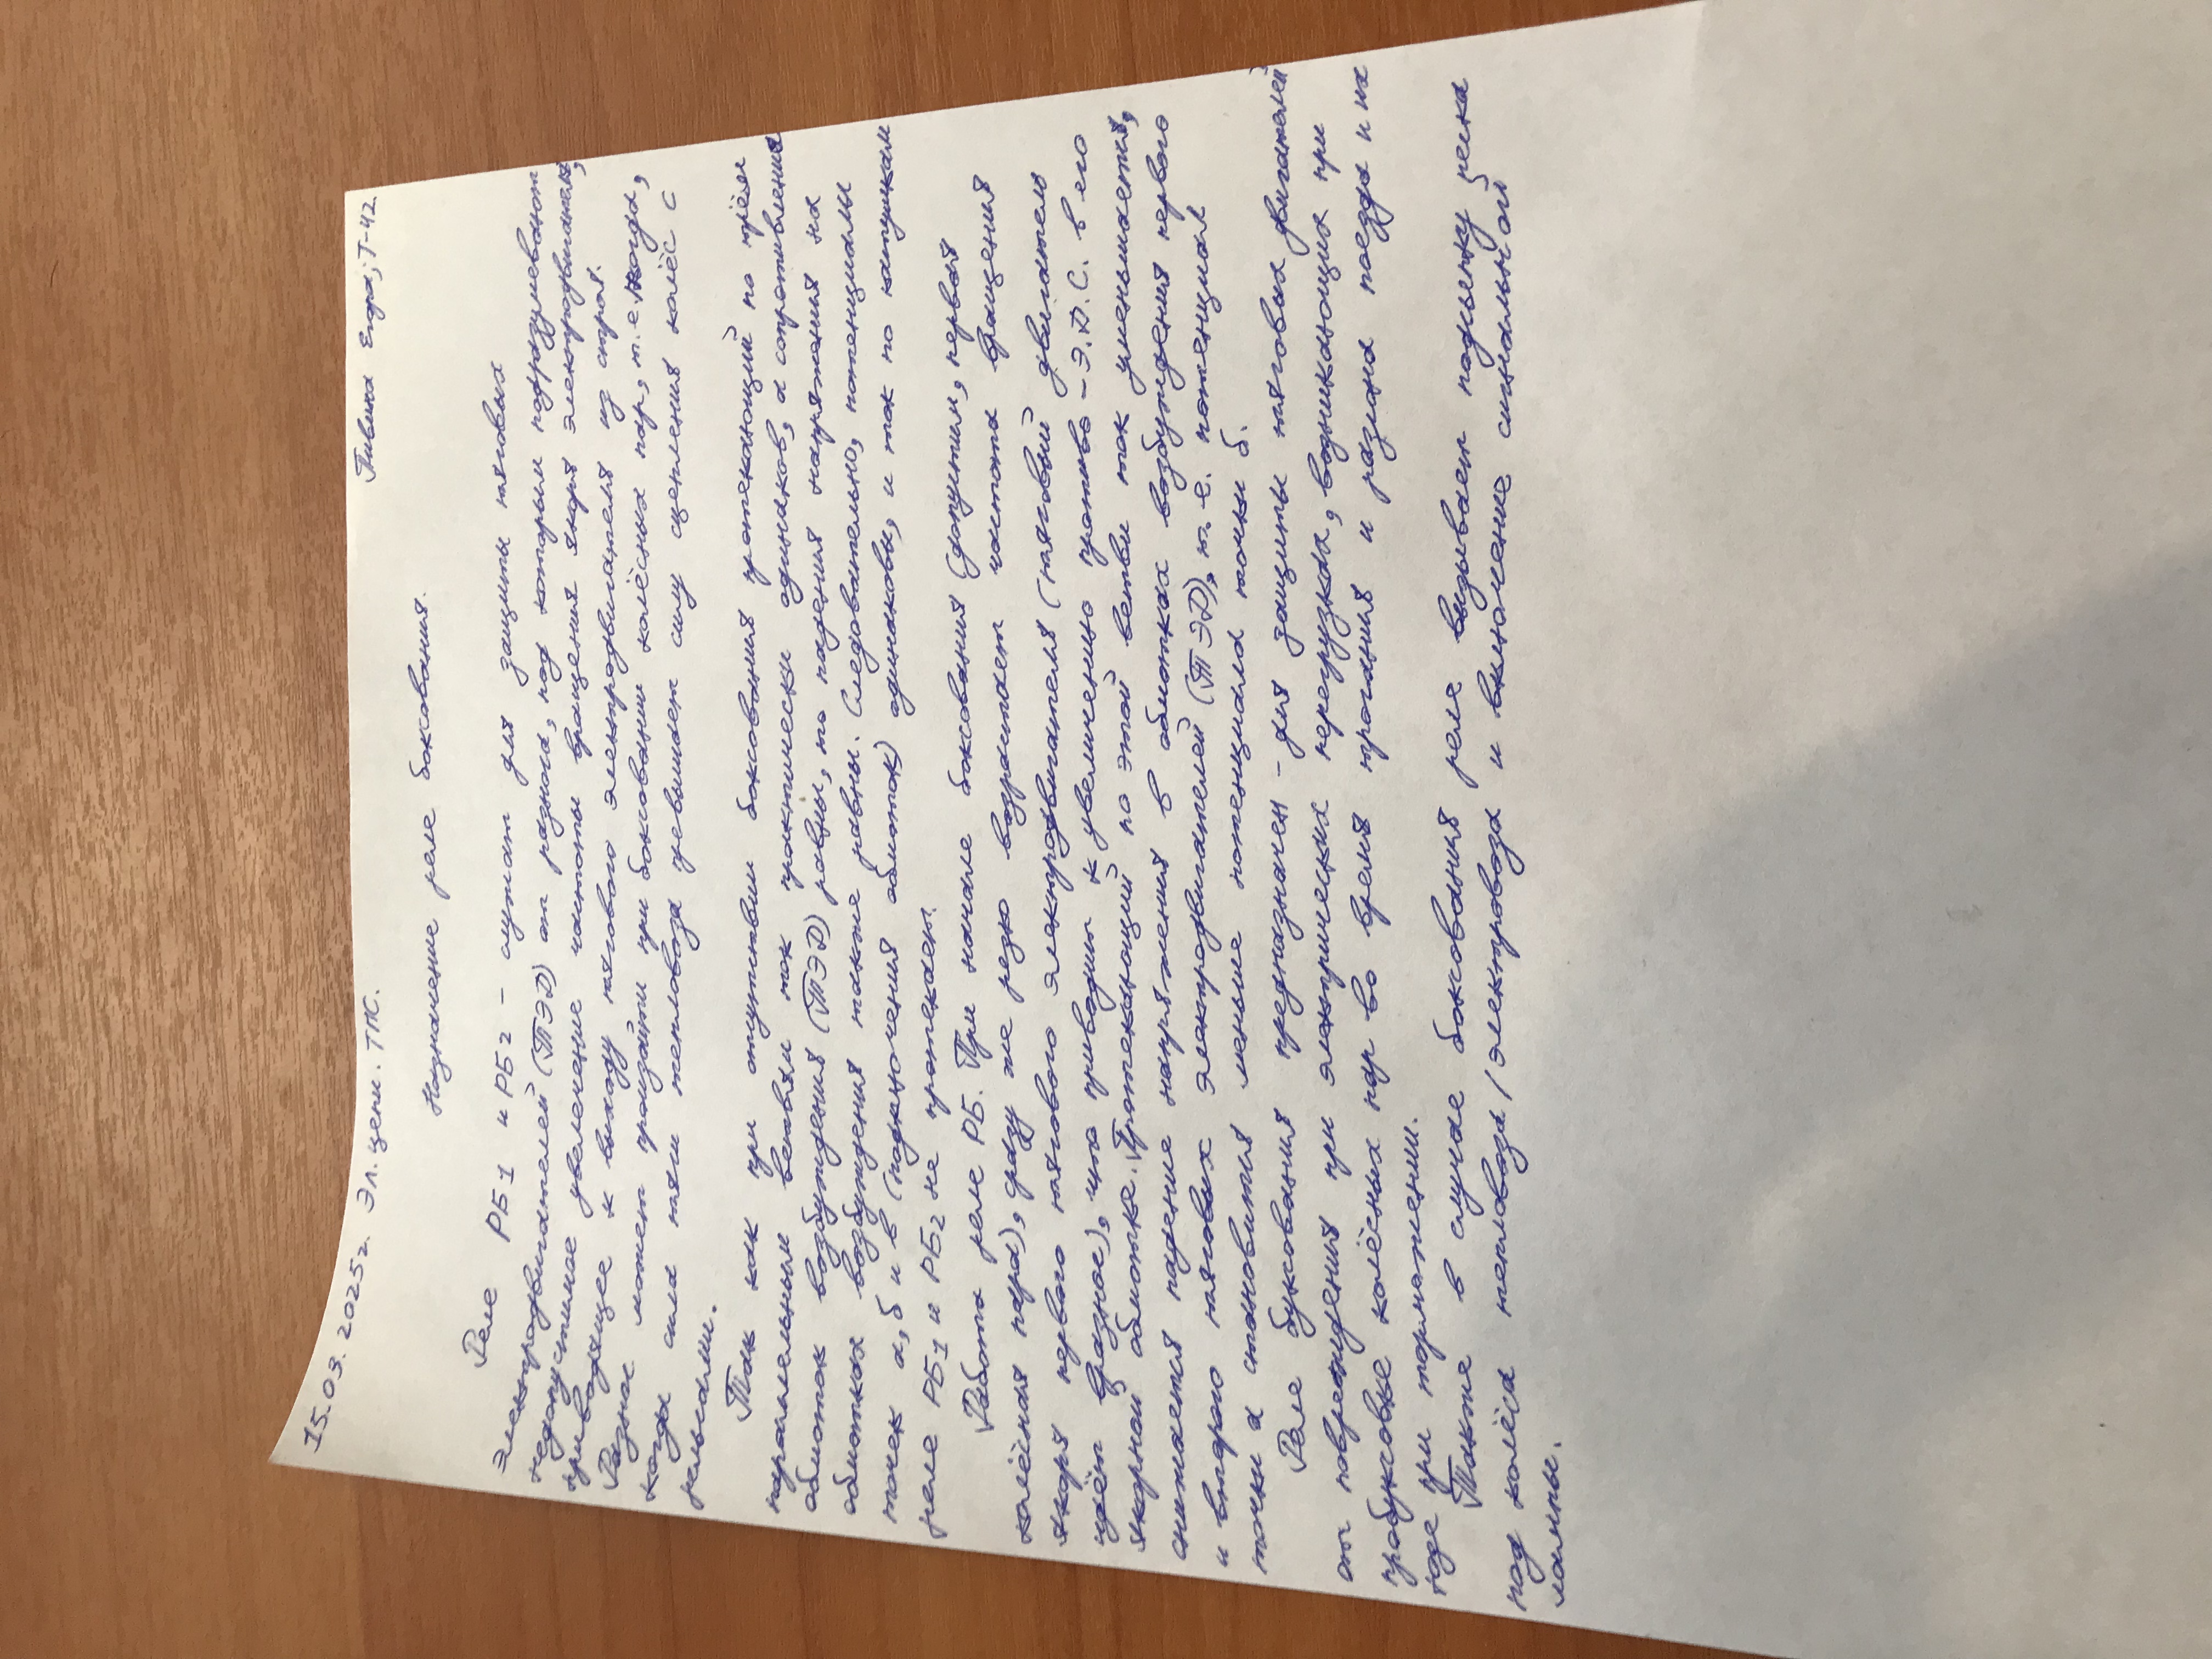 15.03.2025г. Эл. цепи. ТПС. Пивина Егора, Т-42
Назначение реле боксования.
Реле РБ1 и РБ2 - служат для защиты тяговых
электродвигателей (ТЭД) от разноса, под которым подразумевают
недопустимое увелечение частоты вращения якоря электродвигателя,
приводящее к выходу тягового электродвигателя из строя.
Разнос может произойти при боксовании колёсных пар, т.е. когда,
когда сила тяги тепловоза превышает силу сцепления колёс с
рельсами.
Так как при отсутствии боксования протекающий по трём
параллельным ветвям ток практически одинаков, а сопротивления
обмоток возбуждения (ТЭД) равны, то падения напряжения на
обмотках возбуждения также равны. Следовательно, потенциалы
точек а, б и в (подключения обмоток) одинаковы, и ток по катушкам
реле РБ1 и РБ2 не протекает.
Работа реле РБ. При начале боксования (допустим, первая
колёсная пара), сразу же резко возрастает частота вращения
якоря первого тягового электродвигателя (тяговый двигатель
идёт вразнос), что приводит к увеличению противо-Э.Д.С. в его
якорной обмотке. Протекающий по этой ветви ток уменьшается,
снижается падение напряжения в обмотках возбуждения первого
и второго тяговых электродвигателей (ТЭД), т. е. потенциал
точки а становится меньше потенциала точки б.
Реле буксования предназначен - для защиты тяговых двигателей
от повреждения при электрических перегрузках, возникающих при
пробуксовке колёсных пар во время трогания и разгона поезда и их
юзе при торможении.
Также в случае боксования реле вызывает подсыпку песка
под колёса тепловоза/электровоза и включение сигнальной
лампы.